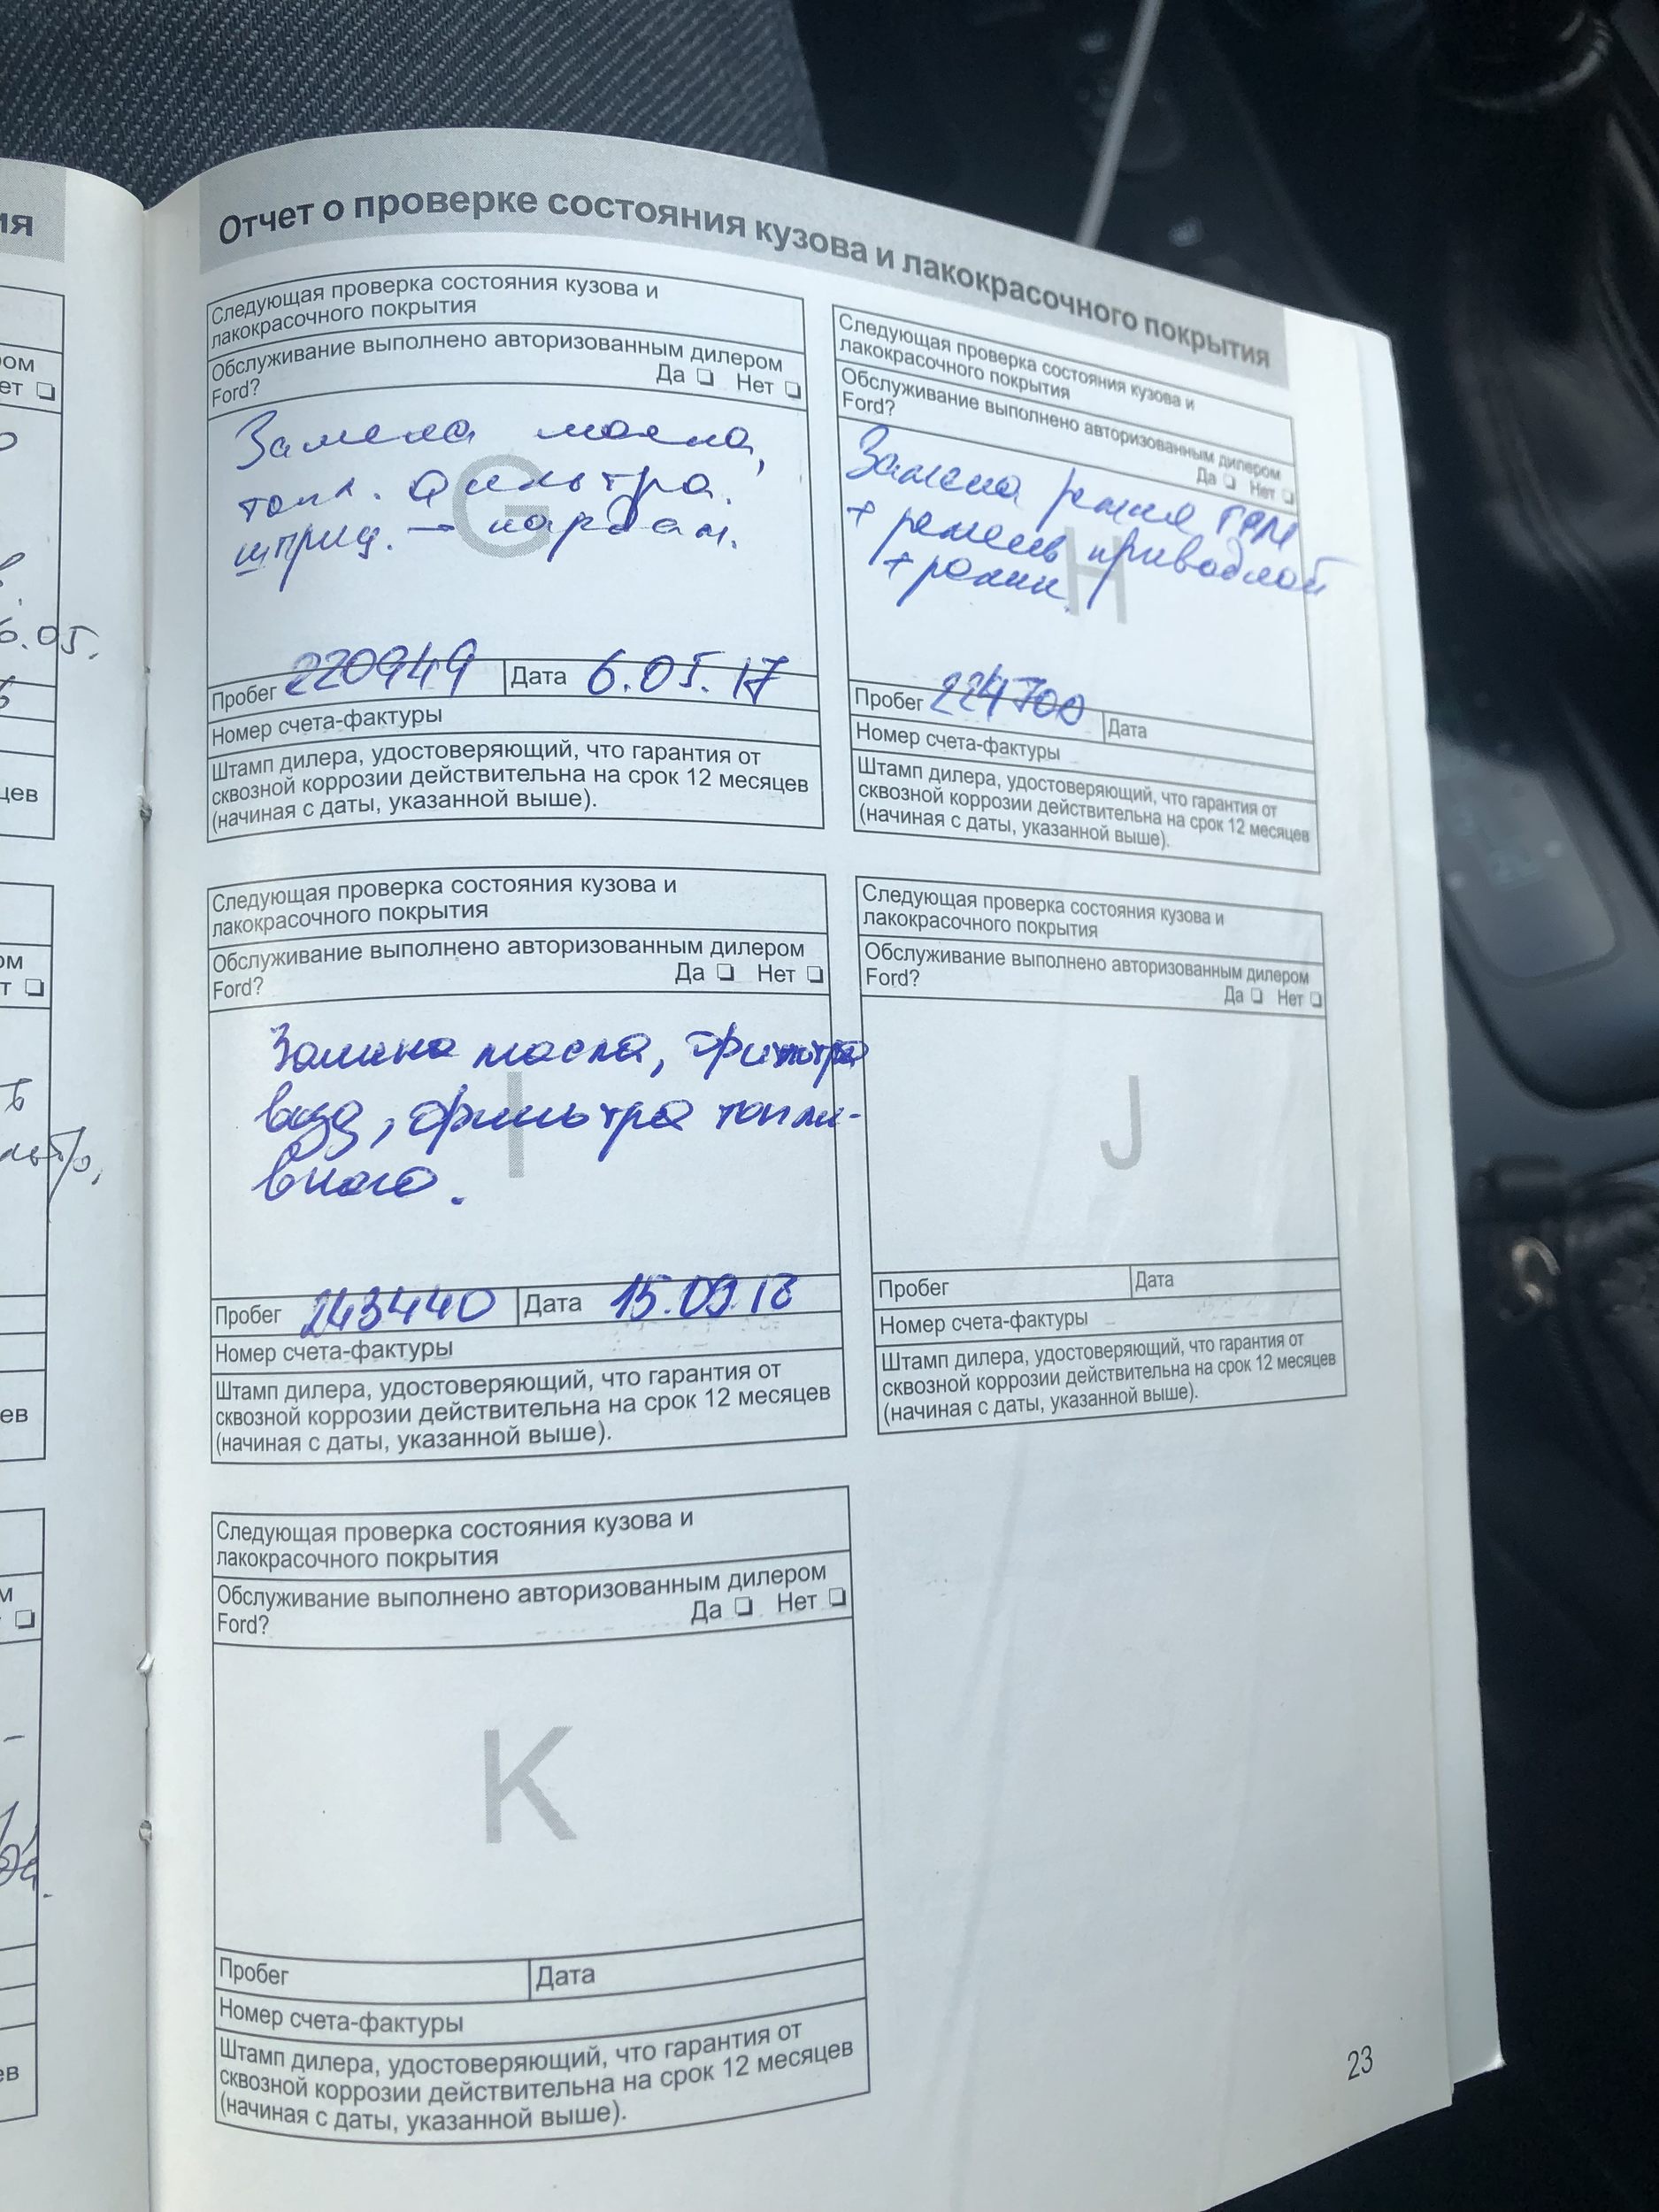 ия
Отчет о проверке состояния кузова и лакокрасочного покрытия
Следующая проверка состояния кузова и
лакокрасочного покрытия
Обслуживание выполнено авторизованным дилером
Ford? Да Нет
Замена масла,
топл. фильтра.
шприц. - кардан.
G
Пробег 220949 Дата 6.05.17
Номер счета-фактуры
Штамп дилера, удостоверяющий, что гарантия от
сквозной коррозии действительна на срок 12 месяцев
(начиная с даты, указанной выше).
Следующая проверка состояния кузова и
лакокрасочного покрытия
Обслуживание выполнено авторизованным дилером
Ford? Да Нет
Замена ремня ГРМ
+ ремень приводной
+ ролики
H
Пробег 224700 Дата
Номер счета-фактуры
Штамп дилера, удостоверяющий, что гарантия от
сквозной коррозии действительна на срок 12 месяцев
(начиная с даты, указанной выше).
Следующая проверка состояния кузова и
лакокрасочного покрытия
Обслуживание выполнено авторизованным дилером
Ford? Да Нет
Замена масла, фильтра
возд, фильтра топли-
вного.
I
Пробег 243440 Дата 15.09.18
Номер счета-фактуры
Штамп дилера, удостоверяющий, что гарантия от
сквозной коррозии действительна на срок 12 месяцев
(начиная с даты, указанной выше).
Следующая проверка состояния кузова и
лакокрасочного покрытия
Обслуживание выполнено авторизованным дилером
Ford? Да Нет
J
Пробег Дата
Номер счета-фактуры
Штамп дилера, удостоверяющий, что гарантия от
сквозной коррозии действительна на срок 12 месяцев
(начиная с даты, указанной выше).
Следующая проверка состояния кузова и
лакокрасочного покрытия
Обслуживание выполнено авторизованным дилером
Ford? Да Нет
K
Пробег Дата
Номер счета-фактуры
Штамп дилера, удостоверяющий, что гарантия от
сквозной коррозии действительна на срок 12 месяцев
(начиная с даты, указанной выше).
23